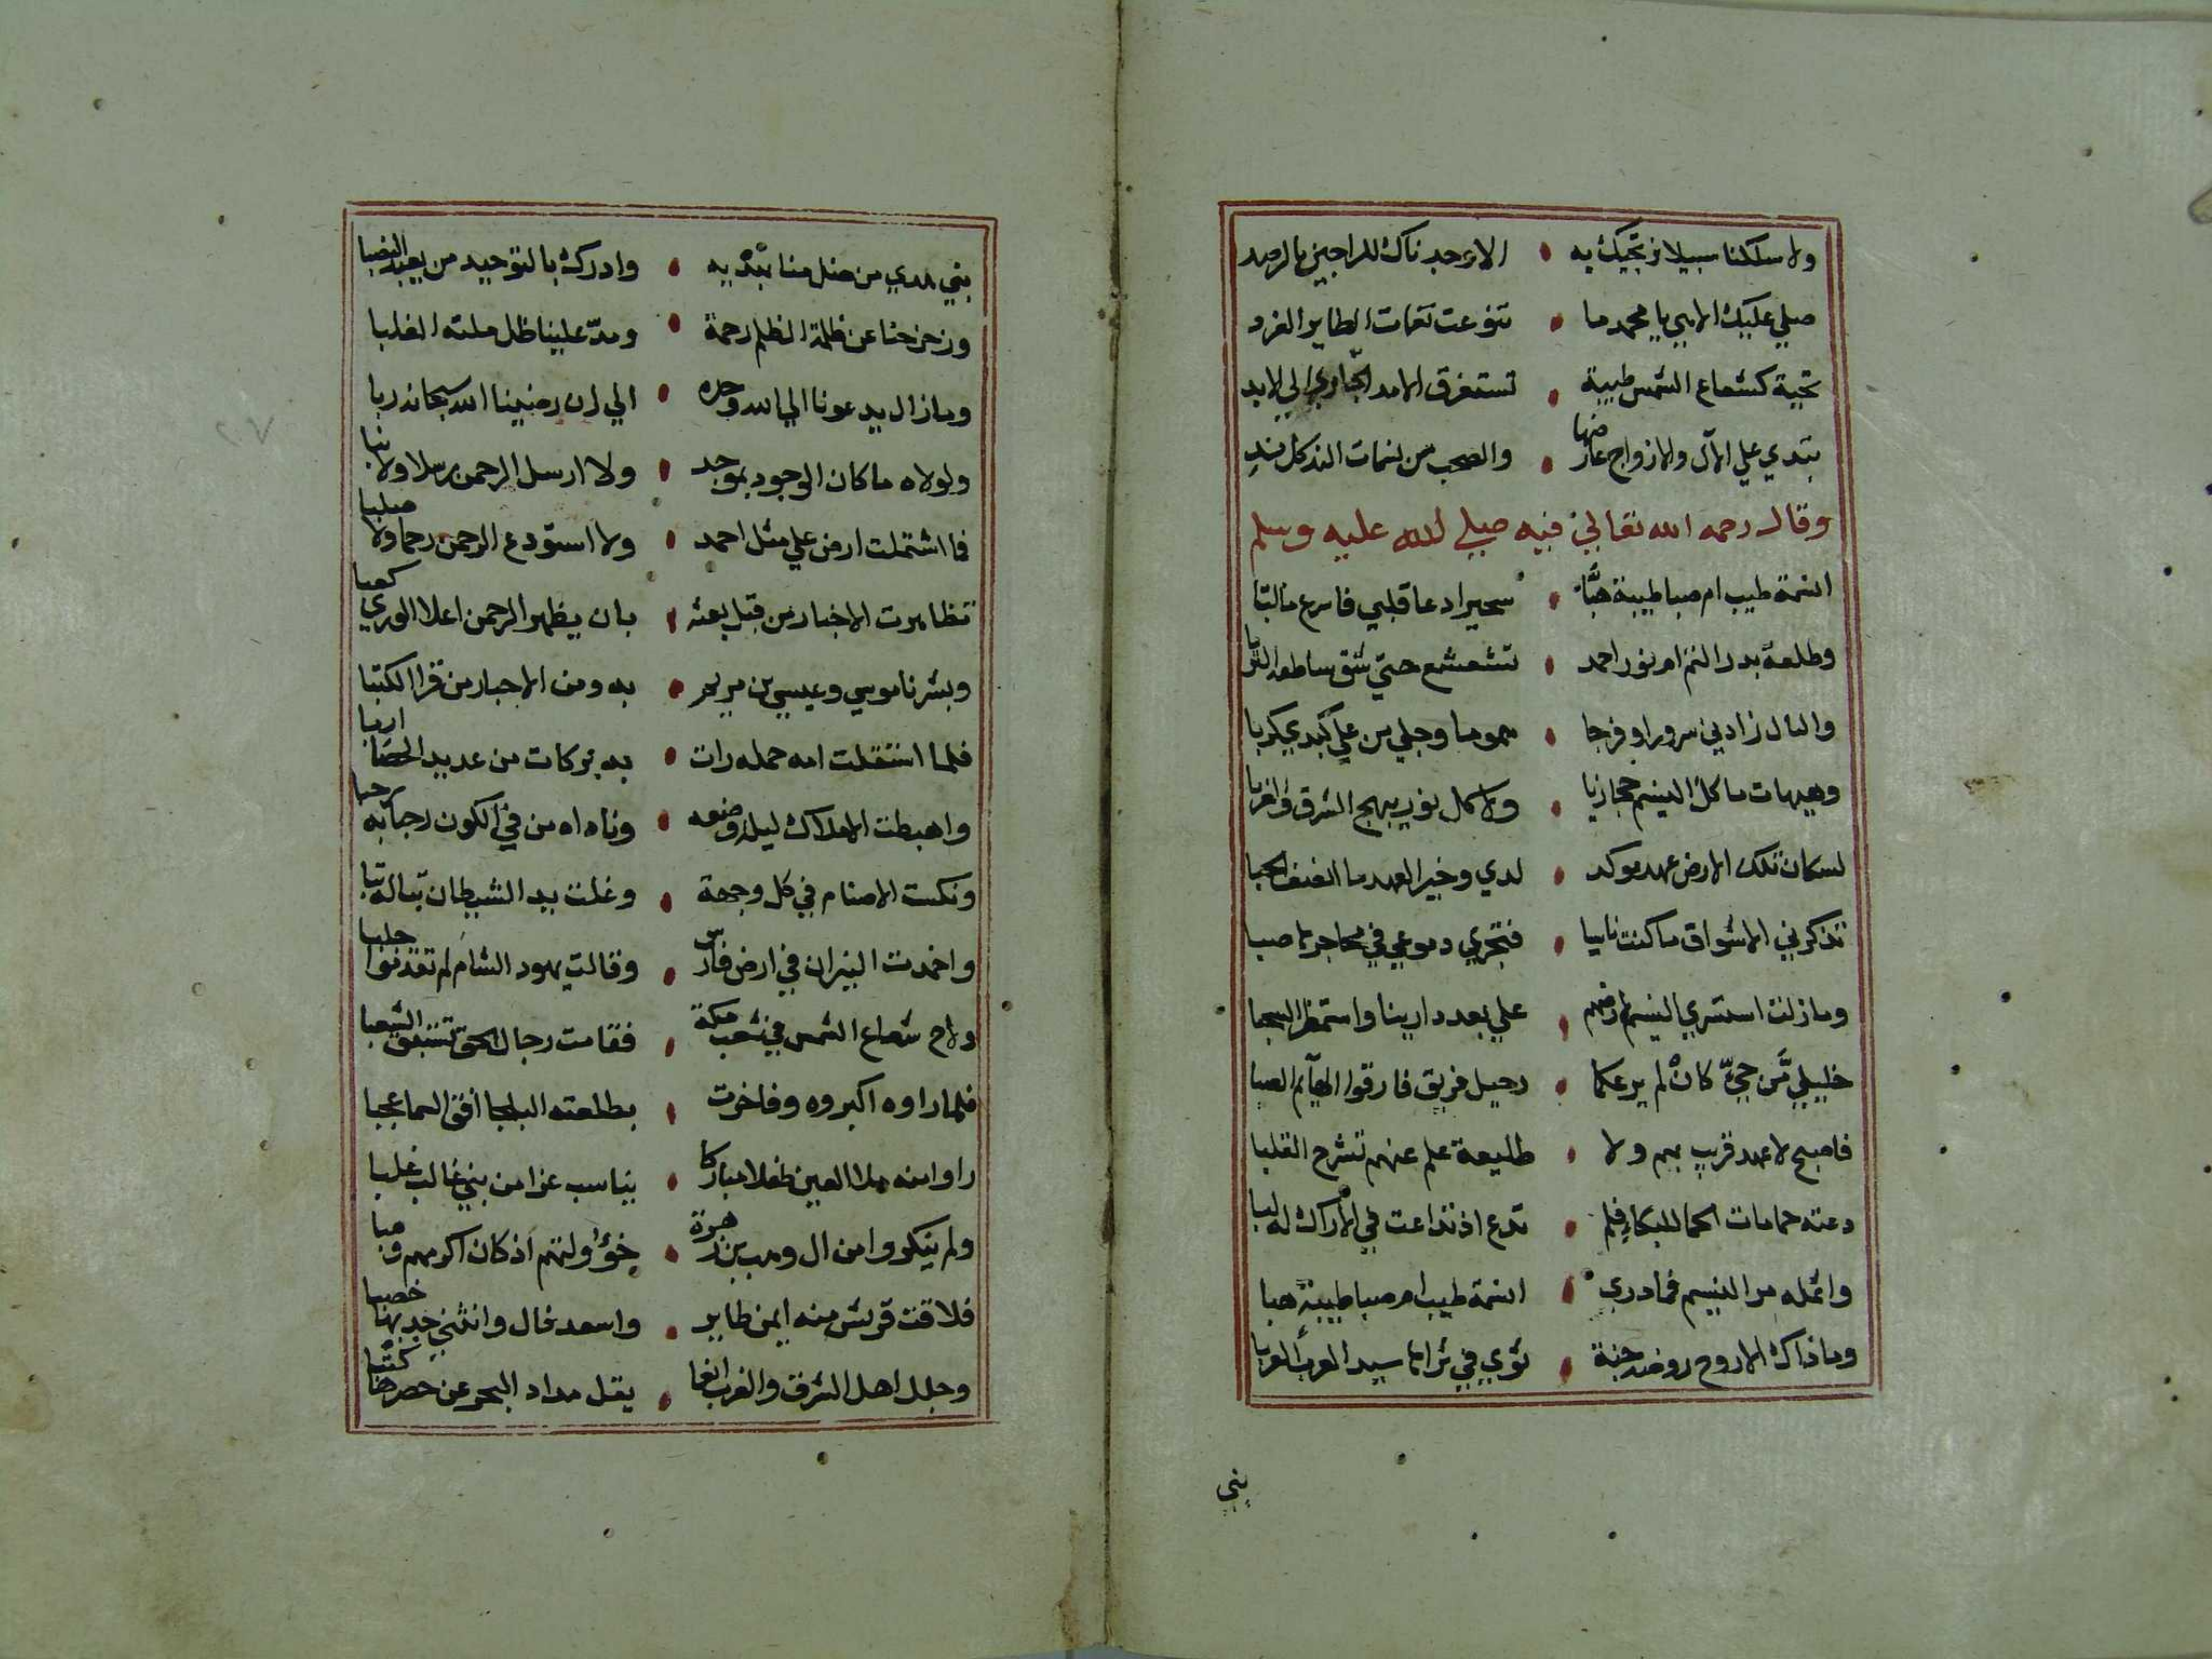 ولا سلكنا سبيلا نرتجيك به • الا وجدناك للراجين بالرصد
صلي عليك الاهي يا محمد ما • تنوعت نغمات الطاير الغرد
تحية كشعاع الشمس طيبة • تستغرق الامد الجاري الي الابد
تبدي علي الآل والازواج عارضها • والصحب من نسمات الند كل ند
وقال رحمه الله تعالي فيه صلي الله عليه وسلم
انسمة طيب ام صبا طيبة هبّا • سحيرا دعا قلبي فاسرع ما لبّا
وطلعة بدر التم ام نور احمد • تشعشع حتي شق ساطعه التربا
والبال زادني سرورا وفرجا • هموما وجلي من علي كبدي كربا
وهيهات ما كل النسيم حجازيا • ولا كل نور يبهج الشرق والغربا
لسكان تلك الارض عهد موكد • لدي وخير العهد ما الحبا
تذكرني الاشواق ما كنت ناسيا • فتجري دموعي في محاجرها صبا
وما زلت استسري النسيم لارضهم • علي بعد دارينا واستمطر السحبا
خليلي مَن حيّ كانْ لم يرعكما • رحيل فريق فارقوا الهآيم الصبا
فاصبح لا عهد قريب بهم ولا • طليعة علم عنهم تشرح القلبا
دعته حمامات الحما للبكا فلم • تدع اذ تداعت في الاراك له لبا
واثمله مر النسيم فما دري • انسمة طيب ام صبا طيبة هبا
وما ذاك الا روح روضة جنة • ثوي في ثراها سيد العرب العربا
بني
نبي هدي من ضل منا بهديه • وادرك بالتوحيد من يعبد النصبا
وزحزحنا عن ظلمة الظلم رحمة • ومدّ علينا ظل ملته الغلبا
وما زال يدعونا الي الله وحده • الي ان رضينا الله سبحانه ربا
ولولاه ما كان الوجود بموجد • ولا ارسل الرحمن رسلا ولا نبا
فما اشتملت ارض علي مثل احمد • ولا استودع الرحمن رحما ولا صلبا
تظاهرت الاخبار من قبل بعثه • بان يظهر الرحمن اعلا الوري كعبا
وبشرنا موسي وعيسي بن مريم • به ومن الاحبار من قرا الكتبا
فلما استقلت امه حمله رات • به بركات من عديد الحصا اربا
واهبطت الاملاك ليلة وضعه • وناداه من في الكون رحبا به رحبا
ونكست الاصنام في كل وجهة • وغلت يد الشيطان تبا له تبا
واخمدت النيران في ارض فارس • وقالت يهود الشام لم تقدفوا حلبا
ولاح شعاع الشمس في شعب مكة • فقامت رجال الحق تستبق الشعبا
فلما راوه اكبروه وفاخرت • بطلعته البلجا افق السما عجبا
راوا منه ملا العين طفلا مباركا • يناسب عزا من بني غالب غلبا
ولم ينكروا من ال وهب بن زهرة • خؤولتهم اذ كان اكرمهم وهبا
فلاقت قريش منه ايمن طاير • واسعد فال وانثني جدبها خصبا
وجلل اهل الشرق والغرب انعما • يقل مداد البحر عن حصرها كتبا